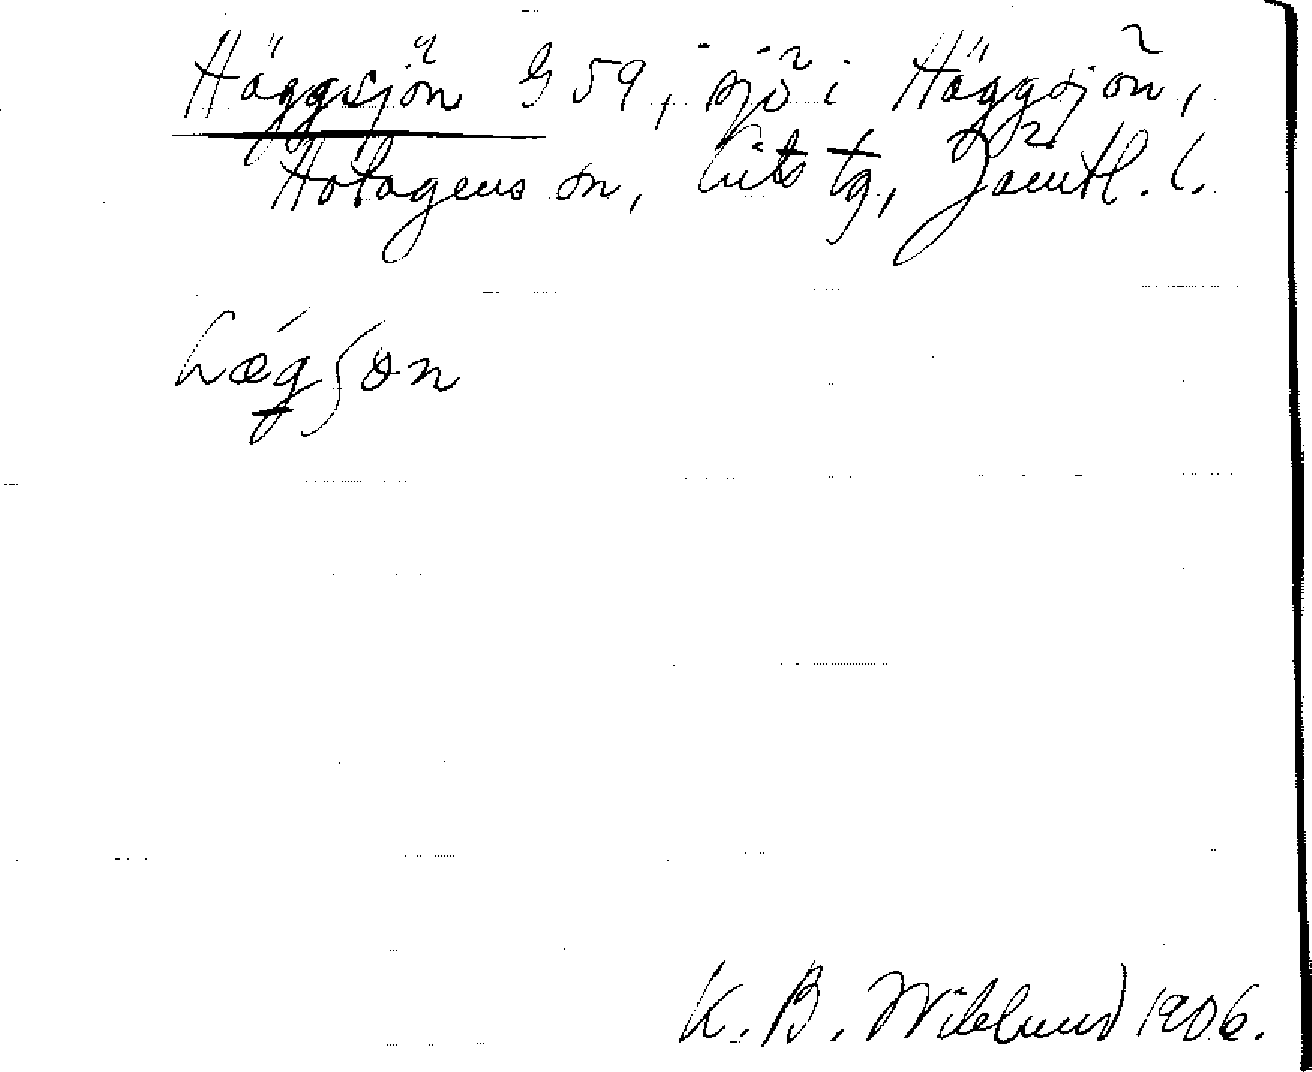 Häggsjön G 59, sjö i Häggsjön,
Hotagens sn, Lits tg, Jämtl. l.
hǽgʃøn
K. B. Wiklund 1906.